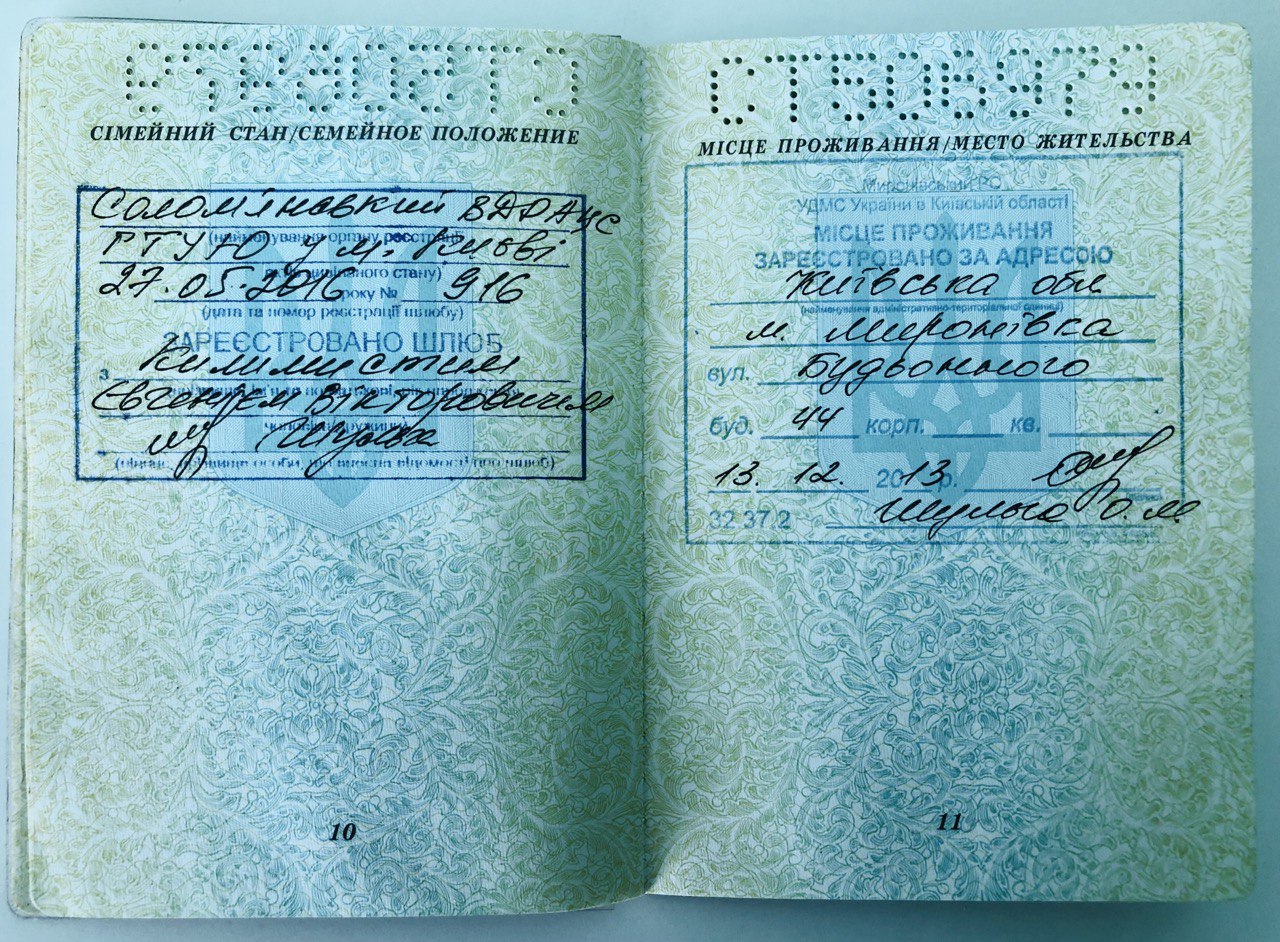 СІМЕЙНИЙ СТАН/СЕМЕЙНОЕ ПОЛОЖЕНИЕ
Солом'янський ВДРАЦС
(найменування органу реєстрації
ГТУЮ у м. Києві
актів цивільного стану)
27.05.2016 року № 916
(дата та номер реєстрації шлюбу)
ЗАРЕЄСТРОВАНО ШЛЮБ
з
Євгенієм Вікторовичем
Шульга
10
СТ506973
МІСЦЕ ПРОЖИВАННЯ/МЕСТО ЖИТЕЛЬСТВА
Миронівський РС
УДМС України в Київській області
МІСЦЕ ПРОЖИВАННЯ
ЗАРЕЄСТРОВАНО ЗА АДРЕСОЮ
Київська обл
(найменування адміністративно-територіальної одиниці)
м. Миронівка
вул. Будьонного
буд. 44 корп. кв.
13. 12. 2013р.
32 37.2 Шульга О.М.
11